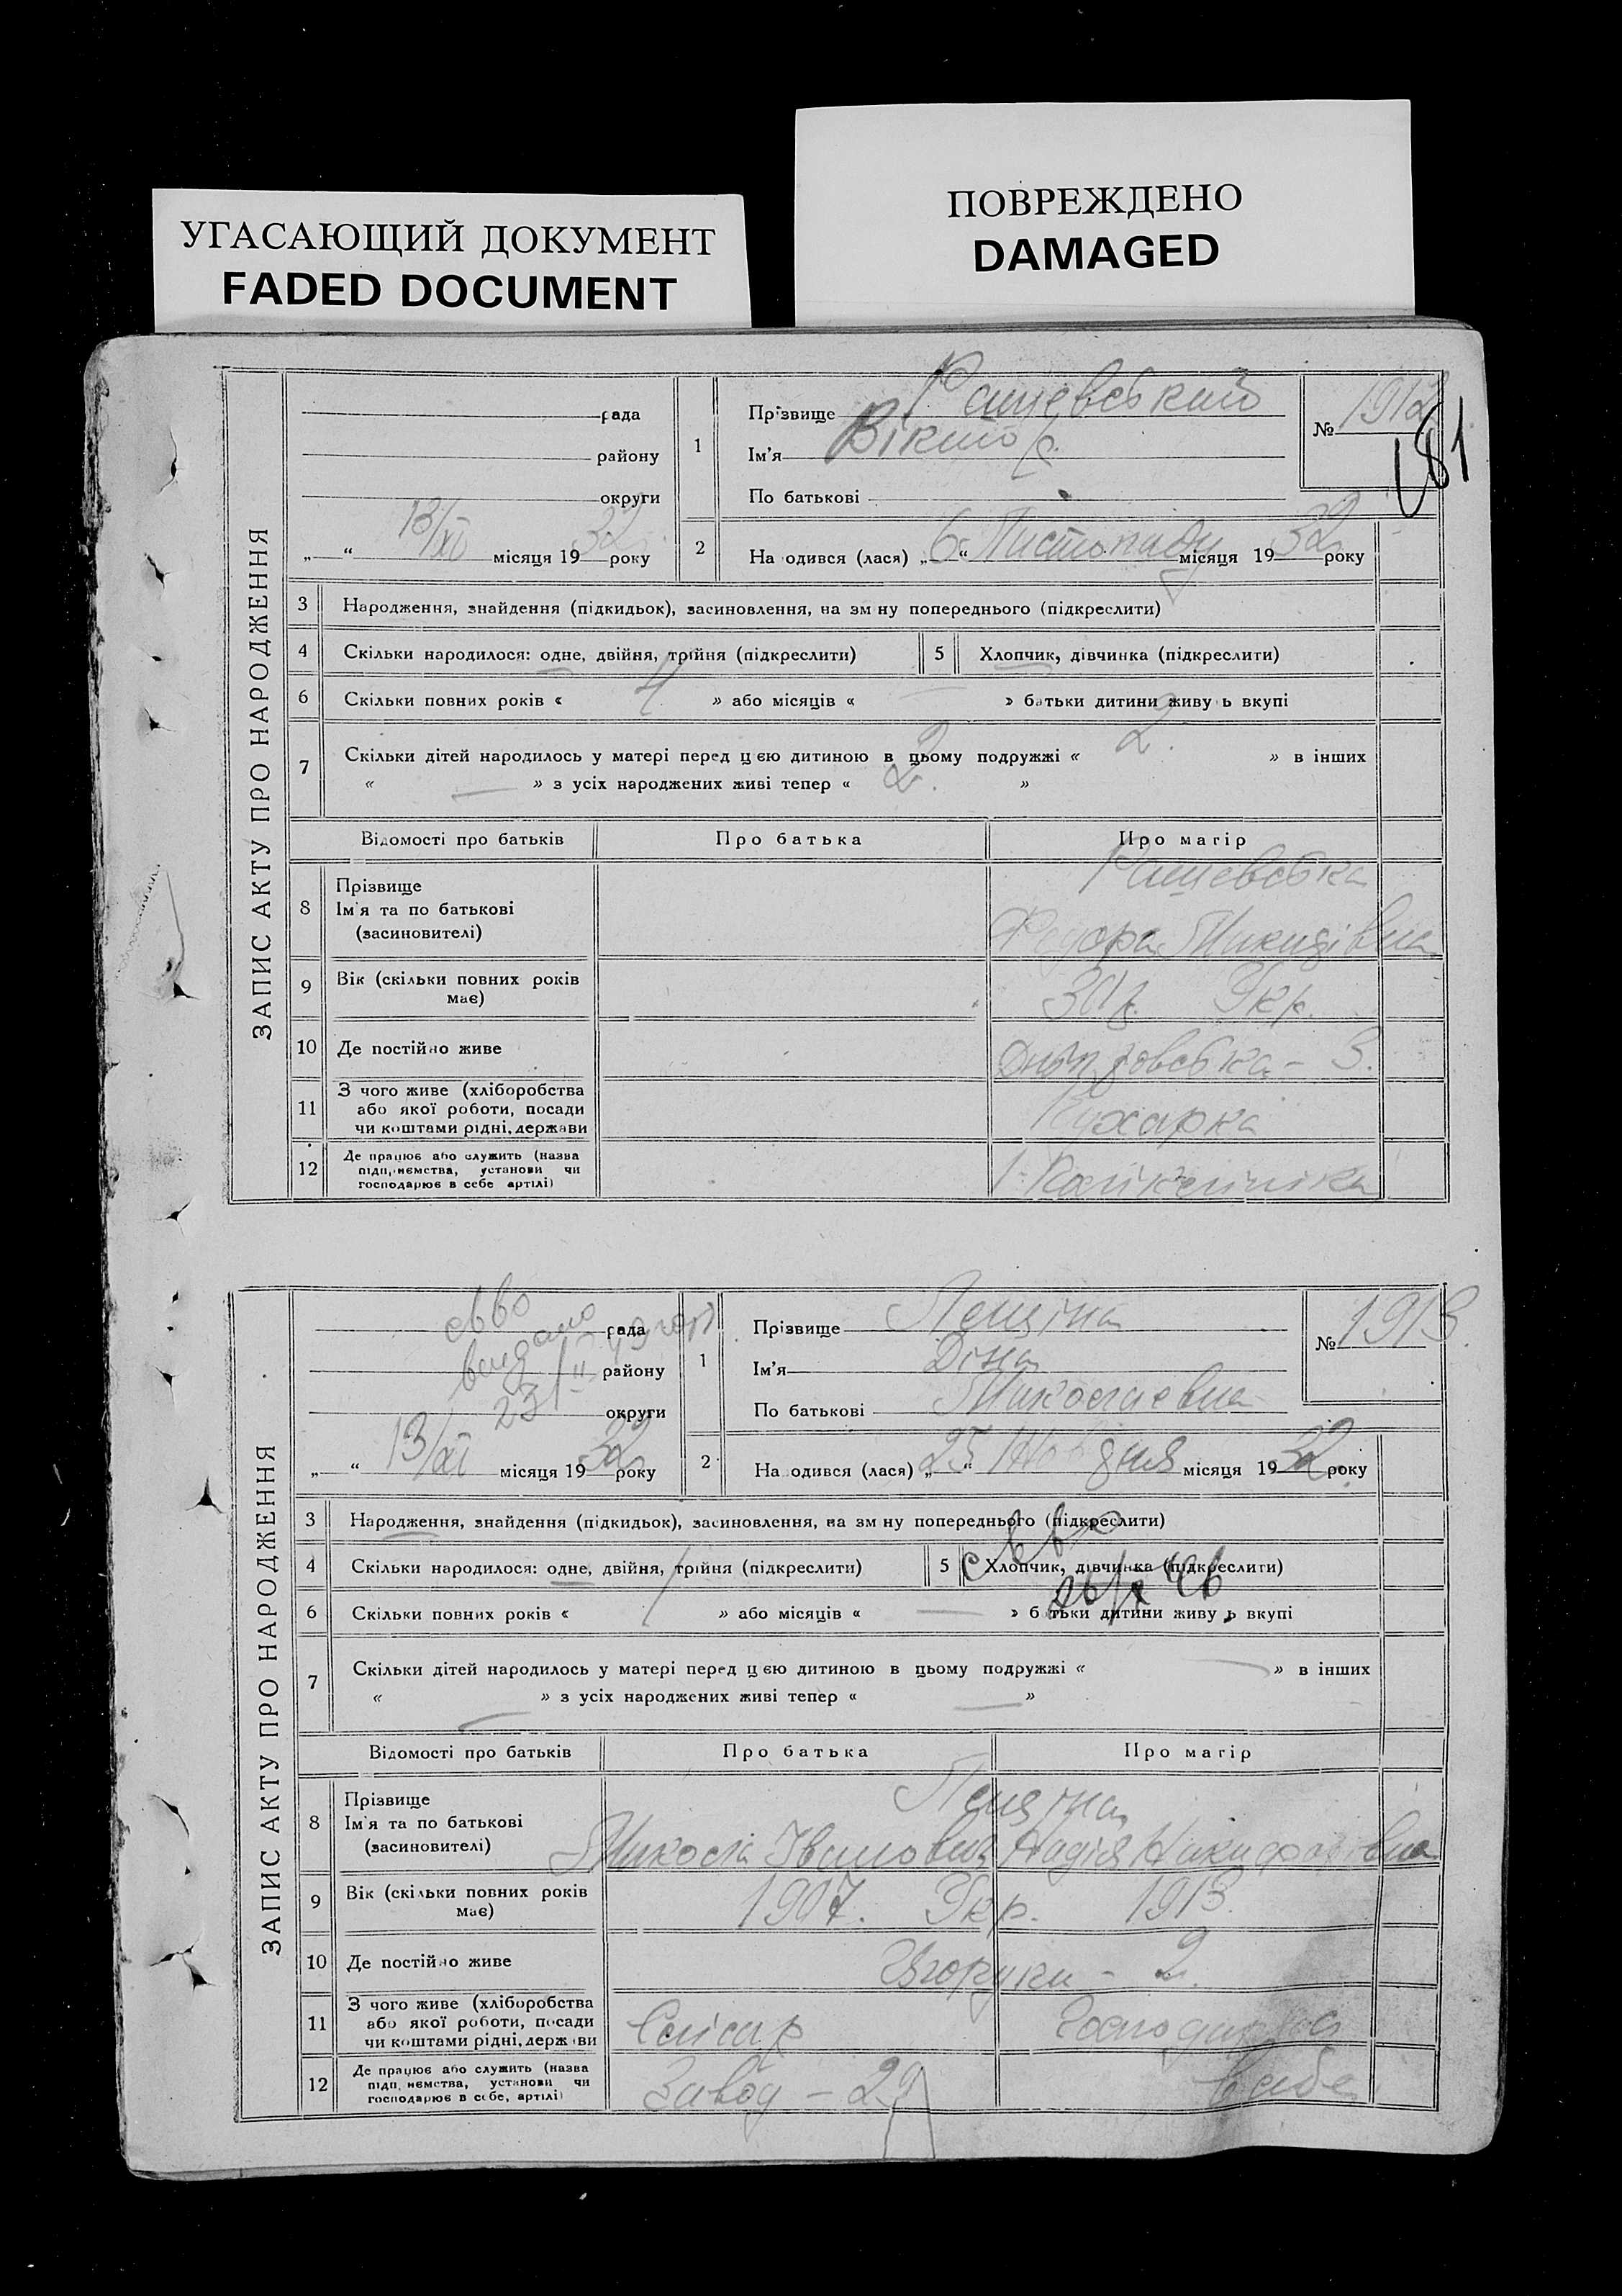 УГАСАЮЩИЙ ДОКУМЕНТ
FADED DOCUMENT
ПОВРЕЖДЕНО
DAMAGED
ЗАПИС АКТУ ПРО НАРОДЖЕННЯ
рада
району
округи
„ “ 13/XI місяця 1932 року
1 Прізвище
Ім'я Віктор
По батькові
№ 1912
181
2 На одився (лася) „6“ Листопаду місяця 1932 року
3 Народження, знайдення (підкидьок), засиновлення, на зм ну попереднього (підкреслити)
4 Скільки народилося: одне, двійня, трійня (підкреслити) 5 Хлопчик, дівчинка (підкреслити)
6 Скільки повних років « 4 » або місяців « — » батьки дитини живу ь вкупі
7 Скільки дітей народилось у матері перед цією дитиною в цьому подружжі « 2. » в інших
« — » з усіх народжених живі тепер « 2. »
Відомості про батьків Про батька Про матір
8 Прізвище
Ім'я та по батькові
(засиновителі)
Федора Микидівна
9 Вік (скільки повних років має) 30 р. Укр.
10 Де постійно живе - 3.
11 З чого живе (хліборобства або якої роботи, посади чи коштами рідні, держави Кухарка
12 Де працює або служить (назва підприємства, установи чи господарює в себе артілі)
ЗАПИС АКТУ ПРО НАРОДЖЕННЯ
св во
видано
рада
району
23/II
округи
„ “ 13/XI місяця 1932 року
1 Прізвище
Ім'я Діна
По батькові Миколаевна
№ 1913.
2 На одився (лася) „25“ Жовтня місяця 1932 року
3 Народження, знайдення (підкидьок), засиновлення, на зм ну попереднього (підкреслити)
4 Скільки народилося: одне, двійня, трійня (підкреслити) 5 Хлопчик, дівчинка (підкреслити)
6 Скільки повних років « 1 » або місяців « — » батьки дитини живу ь вкупі
7 Скільки дітей народилось у матері перед цією дитиною в цьому подружжі « — » в інших
« — » з усіх народжених живі тепер « — »
Відомості про батьків Про батька Про матір
8 Прізвище
Ім'я та по батькові
(засиновителі)
Микола Іванович Надія Никифорівна
9 Вік (скільки повних років має) 1907. Укр. 1913.
10 Де постійно живе - 2.
11 З чого живе (хліборобства або якої роботи, посади чи коштами рідні, держави Слісар
12 Де працює або служить (назва підприємства, установи чи господарює в себе, артілі) Завод - 29 в себе